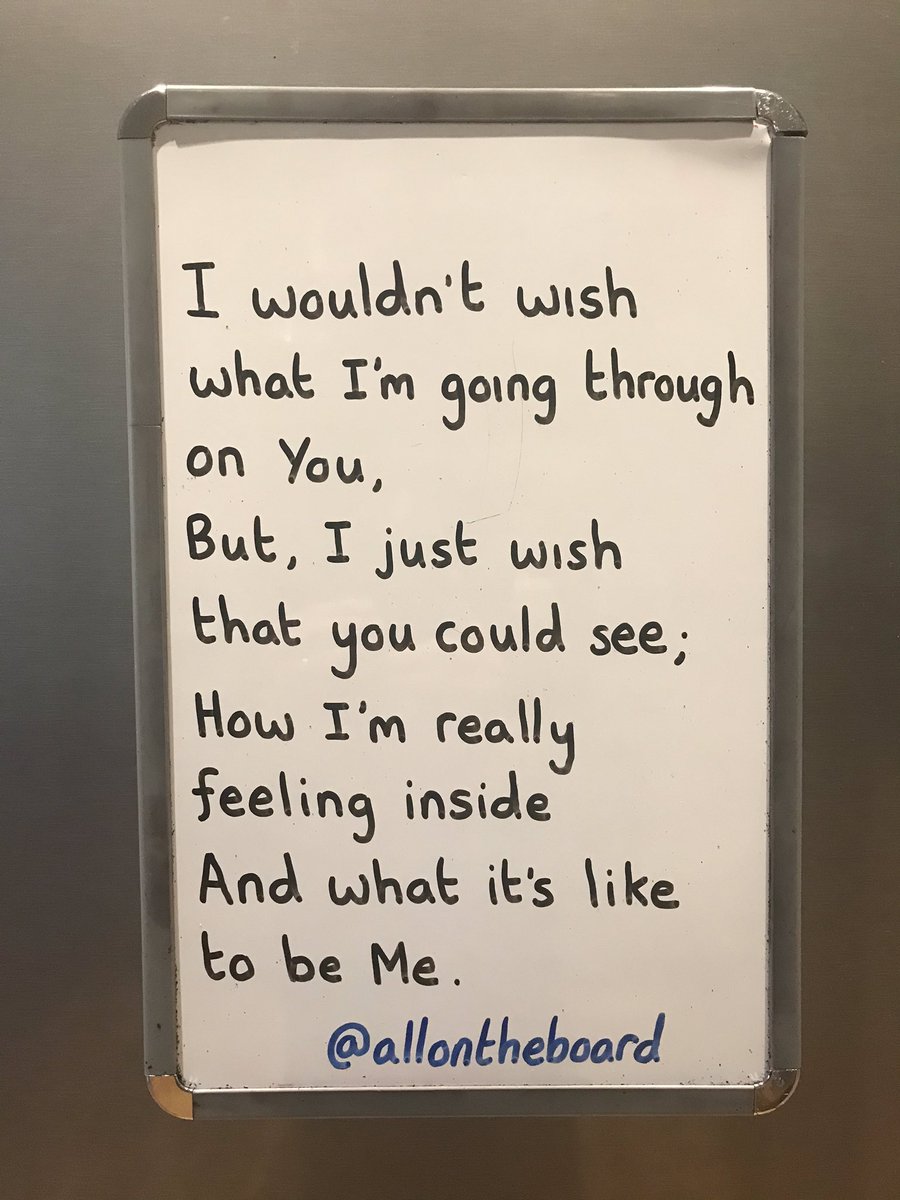 I wouldn't wish
what I'm going through
on You,
But, I just wish
that you could see;
How I'm really
feeling inside
And what it's like
to be Me.
@allontheboard